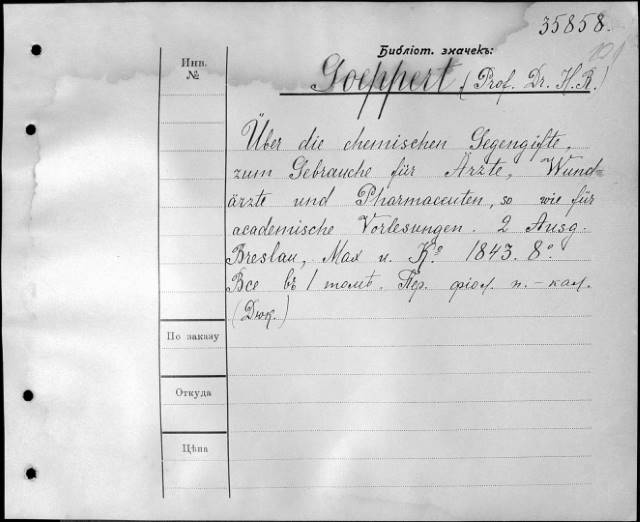 35858.
Библіот. значекъ:
Инв.
№
Goeppert (Prof. Dr. H. R.)
Über die chemischen Gegengifte,
zum Gebrauche für Ärzte, Wund=
ärzte und Pharmaceuten, so wie für
academische Vorlesungen. 2 Ausg.
Breslau, Max u. Kº 1843. 8º.
Все въ 1 томѣ. Пер. фіол. п.-кал.
(Дюк.)
По заказу
Откуда
Цѣна